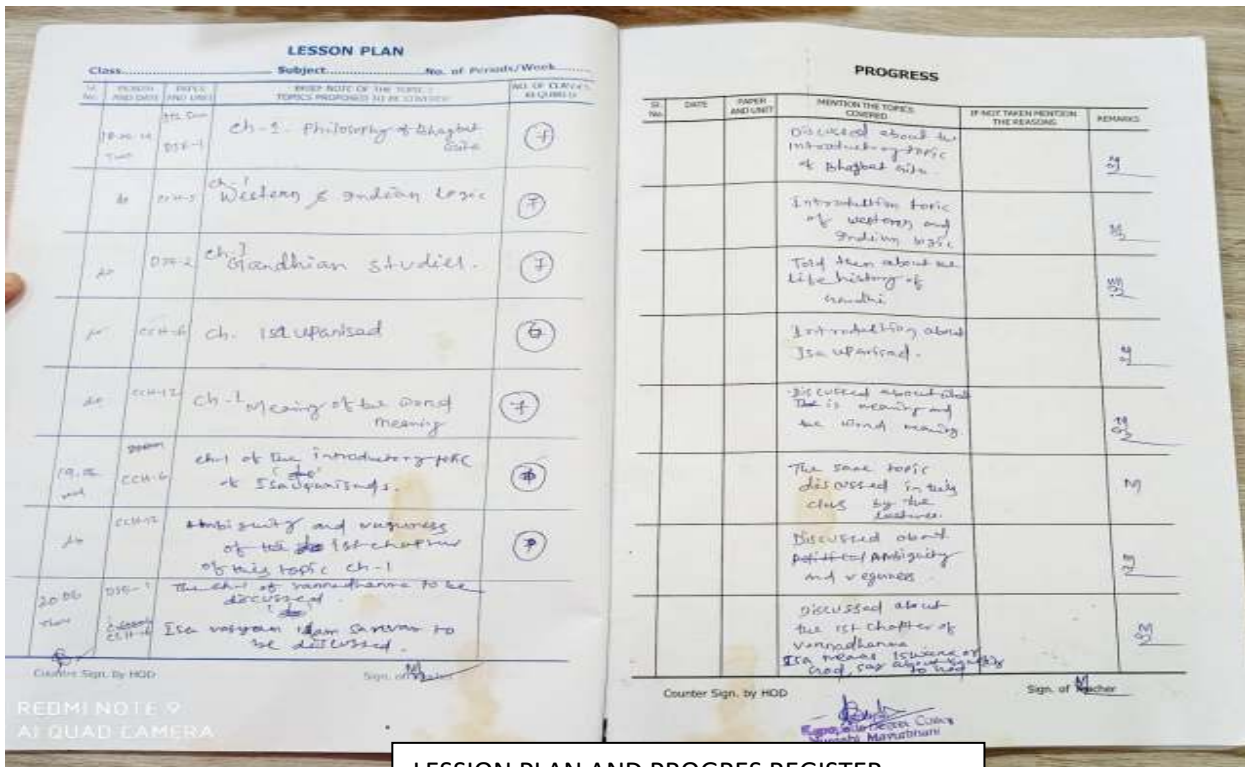 LESSON PLAN
Class............ Subject............ No. of Periods/Week............
Sl. No. PERIOD AND DATE PAPER AND UNIT BRIEF NOTE OF THE TOPIC / TOPICS PROPOSED TO BE COVERED NO. OF CLASSES REQUIRED
DSE-1 Ch-1. Philosophy of Bhagbat Gita 7
do CCH-5 Ch-1 Western & Indian Logic 7
do DSE-2 Ch-1 Gandhian studies. 7
do CCH-6 Ch. Isa upanisad 6
do CCH-12 Ch-1 Meaning of the word
meaning 7
19.06 CCH-6 ch-1 of the introductory topic
of Isa Upanisads.
do CCH-12 Ambiguity and vaguness
of the 1st chapter
of this topic ch-1
20.06 DSE-1 The ch-1 of varnadharma to be
discussed.
Isa vasyam idam sarvam to
be discussed.
Counter Sign. by HOD
Sign. of
PROGRESS
Sl. No. DATE PAPER AND UNIT MENTION THE TOPICS COVERED IF NOT TAKEN MENTION THE REASONS REMARKS
Discussed about the
introductory topic
of Bhagbat Gita.
Introduction topic
of western and
Indian logic
Told them about the
Life history of
Gandhi
Introduction about
Isa upanisad.
Discussed about
is meaning and
the word meaning
The same topic
discussed in this
class by the
Discussed about
Ambiguity
and veguness
Discussed about
the 1st chapter of
varnadharma
Isa means Iswara or
God, say about
to God
Counter Sign. by HOD
Sign. of Teacher
REDMI NOTE 9
AI QUAD CAMERA
LESSION PLAN AND PROGRES REGISTER